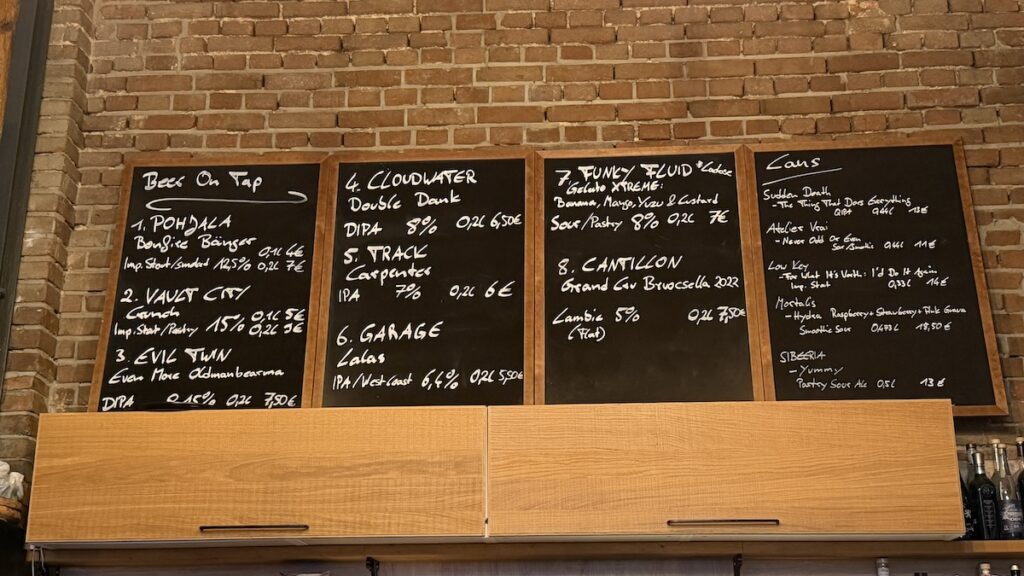 Beer On Tap
1. POHJALA
Bonfire Bänger
0,1L 4€
Imp. Stout/smoked 12,5% 0,2L 7€
2. VAULT CITY
Crunch
0,1L 5€
Imp. Stout/Pastry 15% 0,2L 9€
3. EVIL TWIN
Even More Oldmanbearma
DIPA 0,2L 7,50€
4. CLOUDWATER
Double Dank
DIPA 8% 0,2L 6,50€
5. TRACK
Carpenter
IPA 7% 0,2L 6€
6. GARAGE
Lalas
IPA/West Coast 6,4% 0,2L 5,50€
7. FUNKY FLUID *Lactose
Gelato XTREME:
Banana, Mango, Yuzu & Custard
Sour/Pastry 8% 0,2L 7€
8. CANTILLON
Grand Cru Bruocsella 2022
Lambic 5% 0,2L 7,50€
(Flat)
Cans
Sudden Death
- The Thing That Does Everything
0,44L 13€
Atelier Vrai
- Never Odd Or Even
0,44L 11€
Low Key
- For What It's Worth: I'd Do It Again
Imp. Stout 0,33L 14€
Mortalis
- Hydra Raspberry + Strawberry + Pink Guava
Smoothie Sour 0,473L 18,50€
SIBEERIA
- Yummy
Pastry Sour Ale 0,5L 13€